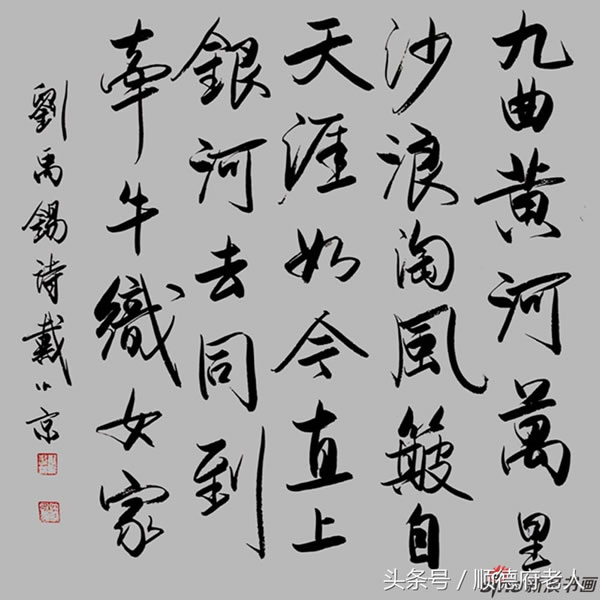 九曲黄河萬里
沙浪淘風簸自
天涯如今直上
銀河去同到
牽牛織女家
劉禹錫詩戴小京
头条号 / 顺德府老人